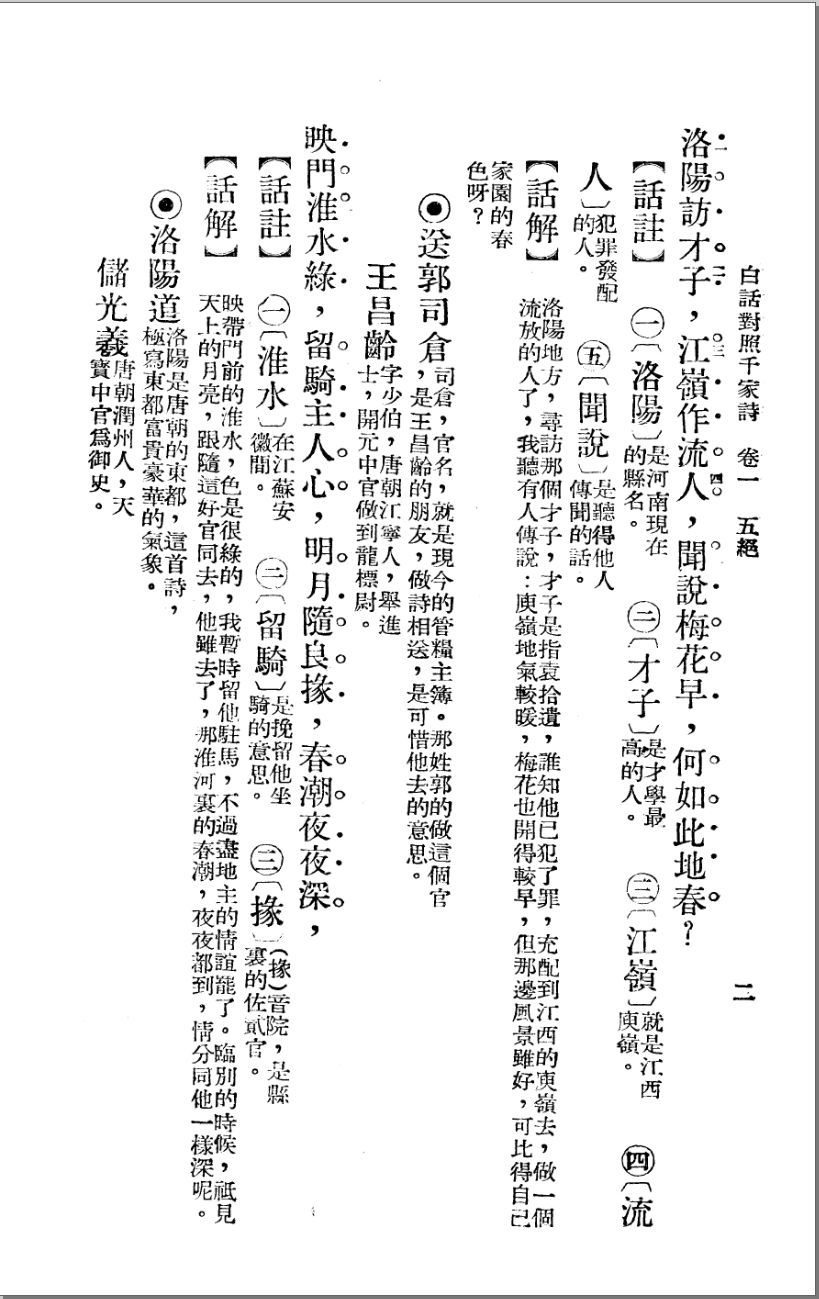 白話對照千家詩　卷一　五絕
二
洛陽訪才子，江嶺作流人，聞說梅花早，何如此地春？
【話註】　㊀〔洛陽〕是河南現在的縣名。　㊁〔才子〕是才學最高的人。　㊂〔江嶺〕就是江西庾嶺。　㊃〔流
人〕犯罪發配的人。　㊄〔聞說〕是聽得他人傳聞的話。
【話解】　洛陽地方，尋訪那個才子，才子是指袁拾遺，誰知他已犯了罪，充配到江西的庾嶺去，做一個
流放的人了，我聽有人傳說：庾嶺地氣較暖，梅花也開得較早，但那邊風景雖好，可比得自己
家園的春
色呀？
◉送郭司倉　司倉，官名，就是現今的管糧主簿。那姓郭的做這個官
，是王昌齡的朋友，做詩相送，是可惜他去的意思。
王昌齡　字少伯，唐朝江寧人，舉進
士，開元中官做到龍標尉。
映門淮水綠，留騎主人心，明月隨良掾，春潮夜夜深，
【話註】　㊀〔淮水〕在江蘇安徽間。　㊁〔留騎〕是挽留他坐騎的意思。　㊂〔掾〕(掾)音院，是縣裏的佐貳官。
【話解】　映帶門前的淮水，色是很綠的，我暫時留他駐馬，不過盡地主的情誼罷了。臨別的時候，祗見
天上的月亮，跟隨這好官同去，他雖去了，那淮河裏的春潮，夜夜都到，情分同他一樣深呢。
◉洛陽道　洛陽是唐朝的東都，這首詩，
極寫東都富貴豪華的氣象。
儲光羲　唐朝潤州人，天
寶中官爲御史。